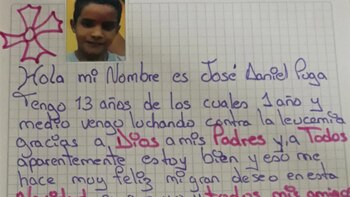 Hola mi Nombre es José Daniel Puga
Tengo 13 años de los cuales 1 año y
medio vengo luchando contra la leucemia
gracias a Dios a mis Padres y a Todos
aparentemente estoy bien y eso me
hace muy feliz mi gran deseo en esta
y todos mis